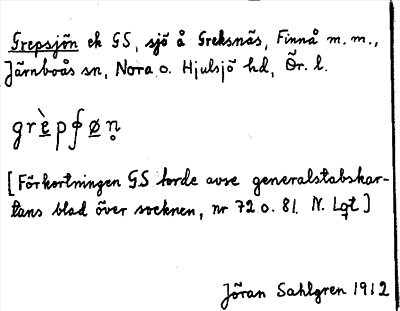 Grepsjön ek GS, sjö å Greksnäs, Finnå m.m.,
Järnboås sn, Nora o. Hjulsjö hd, Ör. l.
grèpʃøn̥
[Förkortningen GS torde avse generalstabskar-
tans blad över socknen, nr 72 o. 81. N. Lgt]
Jöran Sahlgren 1912